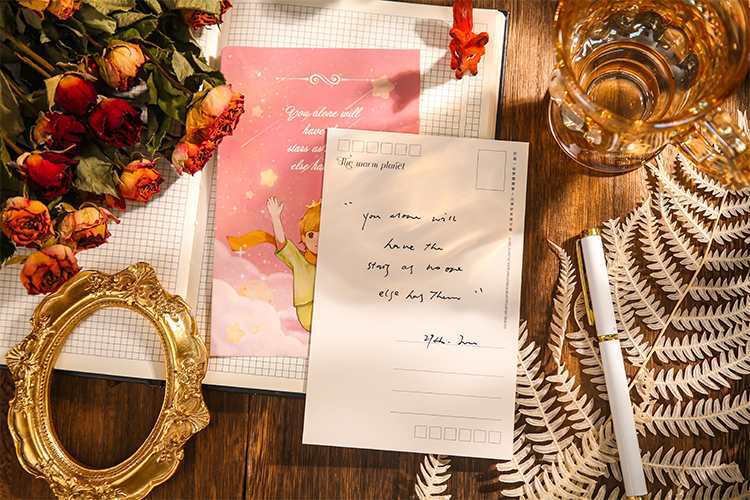 You alone will
have
stars as
else has
The warm planet
" you alone will
have the
stars as no one
else has them "
27th. Jun